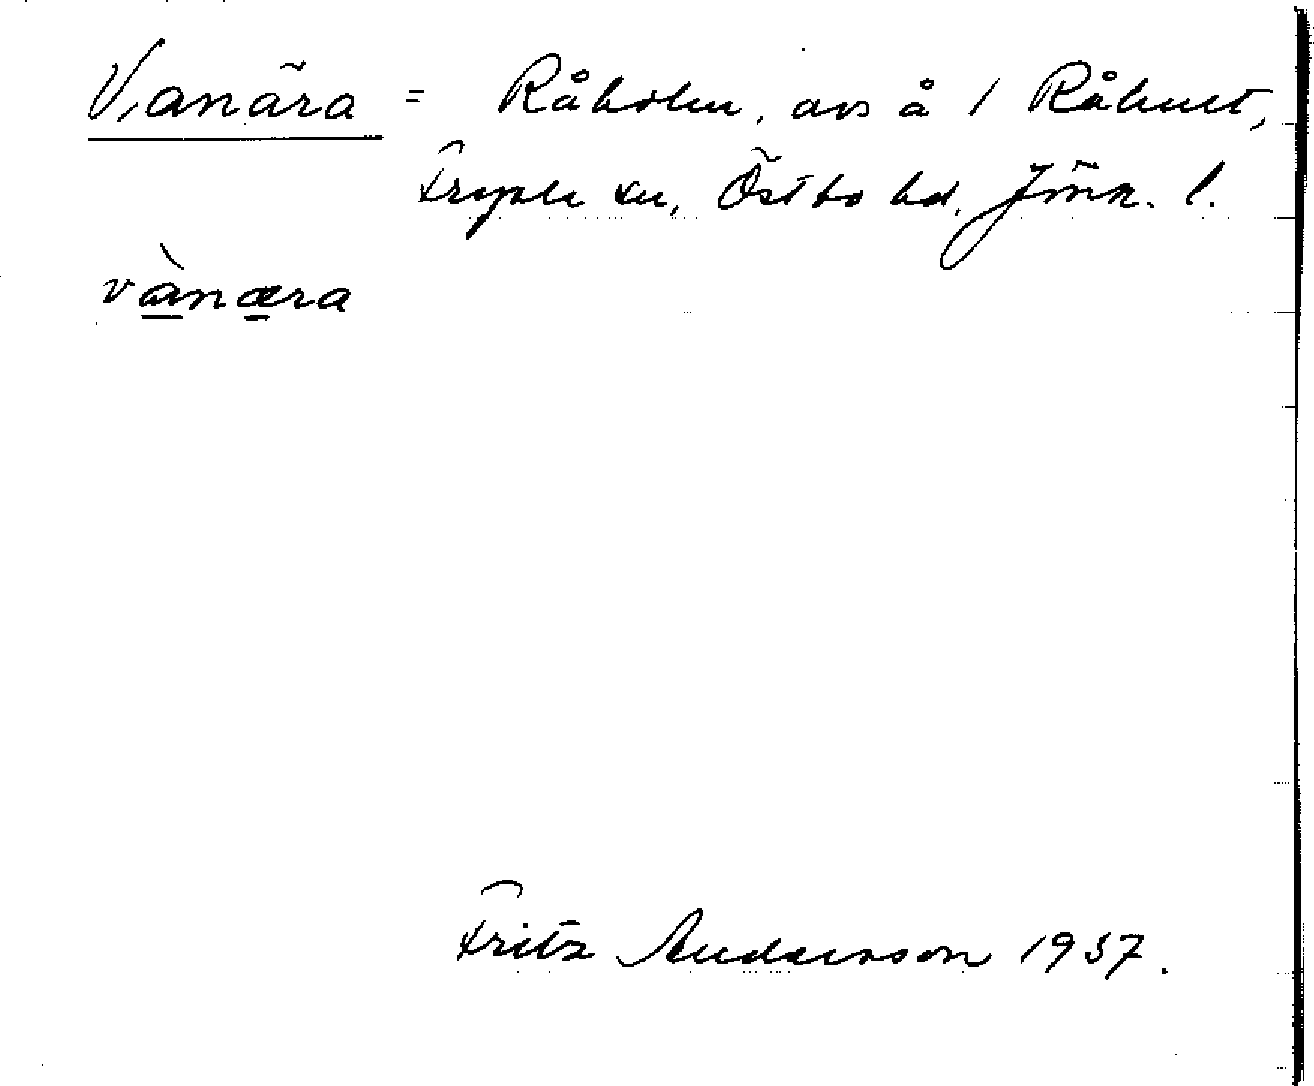 Vanära = Råholm, avs å / Råhult,
Fryele sn, Östbo hd, Jönk. l.
vànæra
Fritz Andersson 1937.